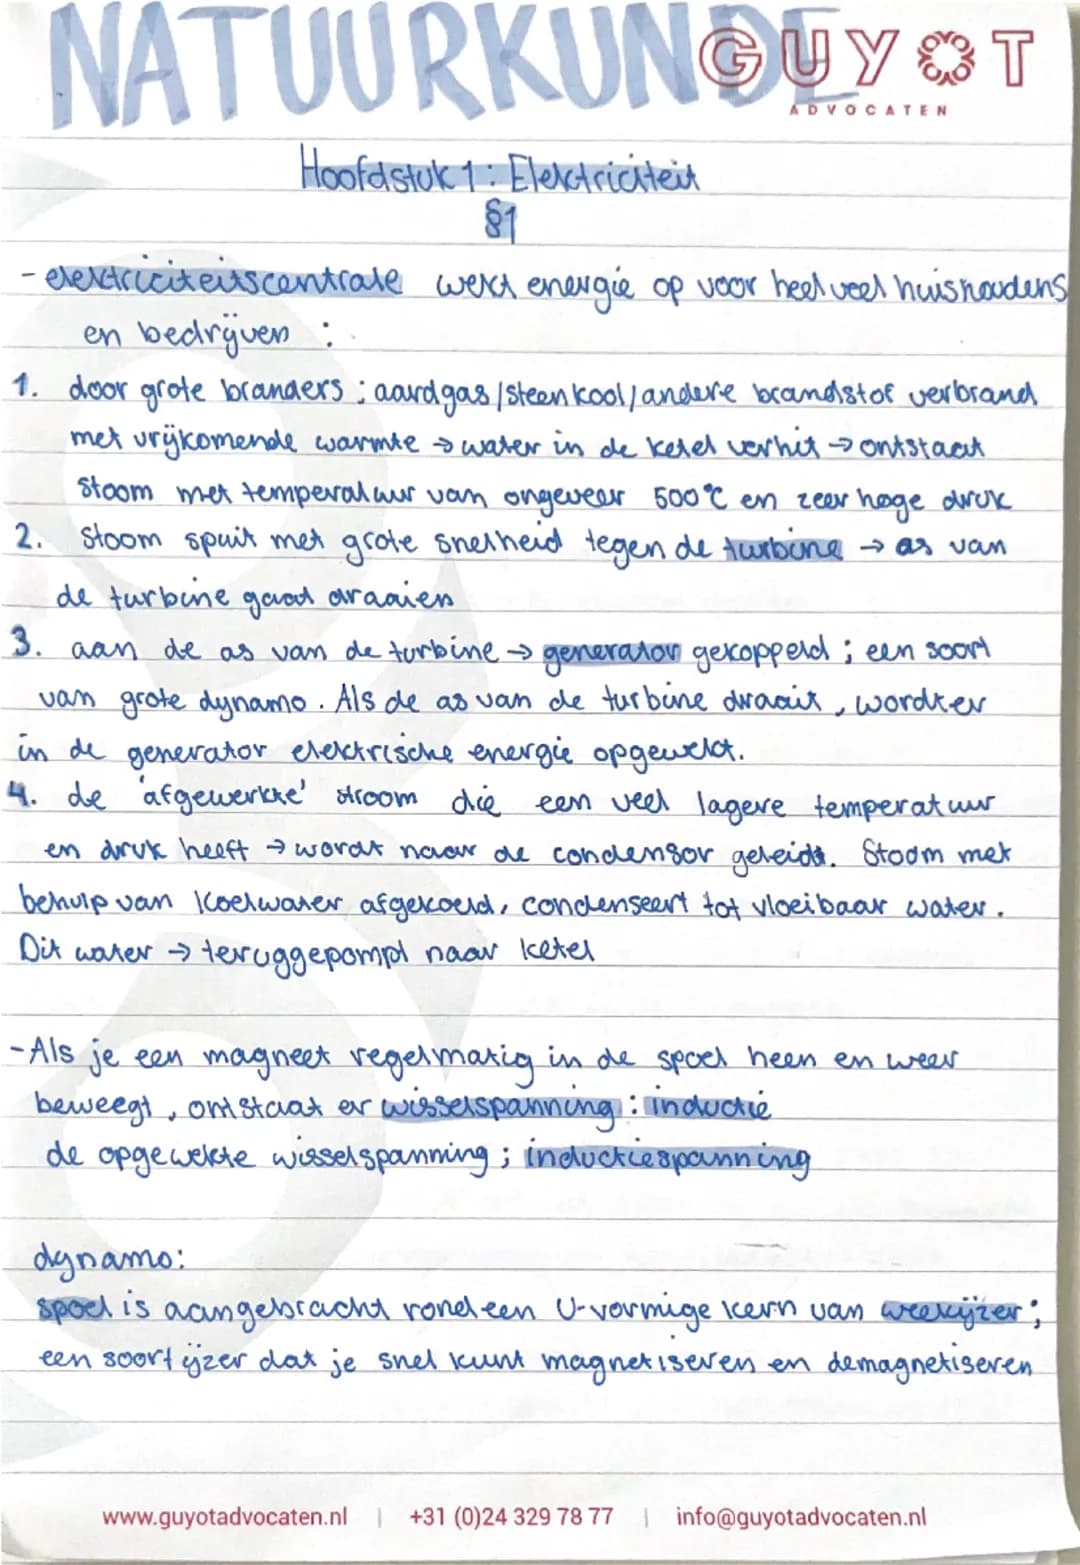 NATUURKUNDE
GUYOT
ADVOCATEN
Hoofdstuk 1: Elektriciteit
§1
- elektriciteitscentrale wekt energie op voor heel veel huishoudens
en bedrijven :
1. door grote branders ; aardgas/steenkool/andere brandstof verbrand
met vrijkomende warmte → water in de ketel verhit → ontstaat
stoom met temperatuur van ongeveer 500°C en zeer hoge druk
2. Stoom spuit met grote snelheid tegen de turbine → as van
de turbine gaat draaien
3. aan de as van de turbine → generator gekoppeld ; een soort
van grote dynamo. Als de as van de turbine draait, wordt er
in de generator elektrische energie opgewekt.
4. de 'afgewerkte' stroom die een veel lagere temperatuur
en druk heeft → wordt naar de condensor geleidt. Stoom met
behulp van koelwater afgekoeld, condenseert tot vloeibaar water.
Dit water → teruggepompt naar ketel
- Als je een magneet regelmatig in de spoel heen en weer
beweegt, ontstaat er wisselspanning : inductie
de opgewekte wisselspanning ; inductiespanning
dynamo:
spoel is aangebracht rond een U-vormige kern van weekijzer ;
een soort ijzer dat je snel kunt magnetiseren en demagnetiseren
www.guyotadvocaten.nl | +31 (0)24 329 78 77 | info@guyotadvocaten.nl